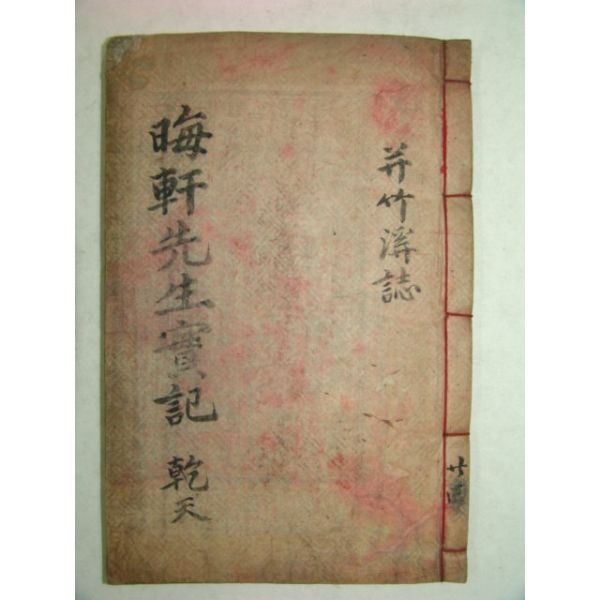 晦軒先生實記 乾天
并竹溪誌